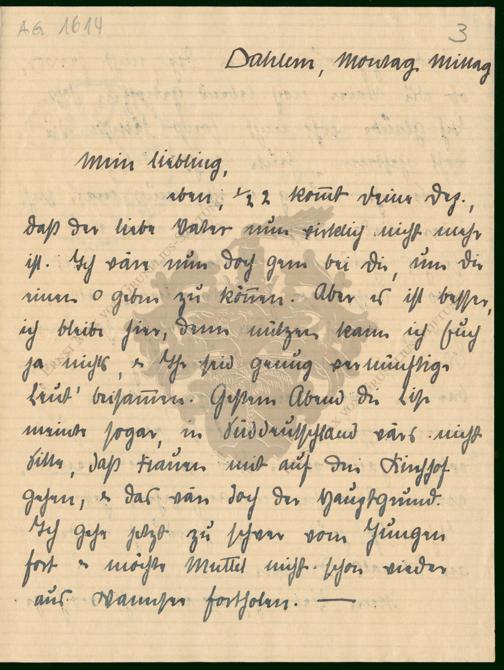 AG 1614
3
Dahlem, Montag Mittag
Mein Liebling,
eben, ½2 kommt deine Dep.,
daß der liebe Vater nun wirklich nicht mehr
ist. Ich wäre nun doch gern bei dir, um dir
einen o geben zu können. Aber es ist besser,
ich bleibe hier, denn nützen kann ich Euch
ja nichts, & Ihr seid genug vernünftige
Leut' beisammen. Gestern Abend die Lise
meinte sogar, in Süddeutschland wärs nicht
Sitte, daß Frauen mit auf den Kirchhof
gehen, & das wär doch der Hauptgrund.
Ich gehe jetzt zu schwer vom Jungen
fort & möchte Muttel nicht schon wieder
aus Wannsee fortholen. —